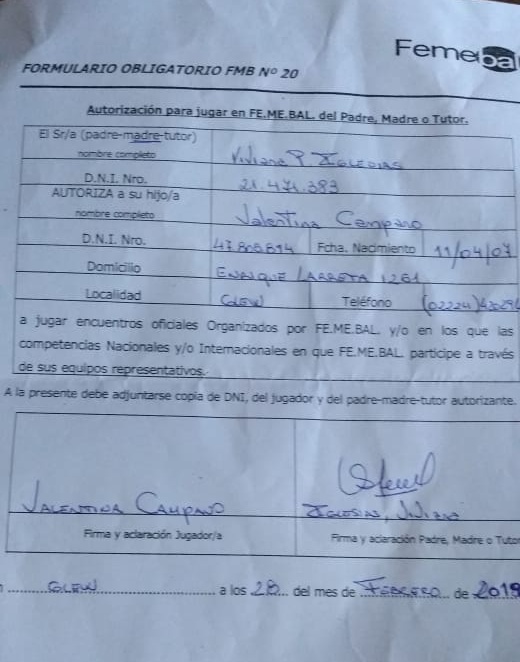 Femebal
FORMULARIO OBLIGATORIO FMB Nº 20
Autorización para jugar en FE.ME.BAL. del Padre, Madre o Tutor.
El Sr/a (padre-madre-tutor)
nombre completo
Viviana P. Iglesias
D.N.I. Nro. 21.471.383
AUTORIZA a su hijo/a
nombre completo
Valentina Campano
D.N.I. Nro. 47.806.814 Fcha. Nacimiento 11/04/07
Domicilio ENRIQUE LARRETA 1261
Localidad GLEW Teléfono (02224)
a jugar encuentros oficiales Organizados por FE.ME.BAL. y/o en los que las
competencias Nacionales y/o Internacionales en que FE.ME.BAL. participe a través
de sus equipos representativos.
A la presente debe adjuntarse copia de DNI, del jugador y del padre-madre-tutor autorizante.
VALENTINA CAMPANO IGLESIAS, Viviana
Firma y aclaración Jugador/a Firma y aclaración Padre, Madre o Tutor
GLEW a los 28 del mes de FEBRERO de 2019